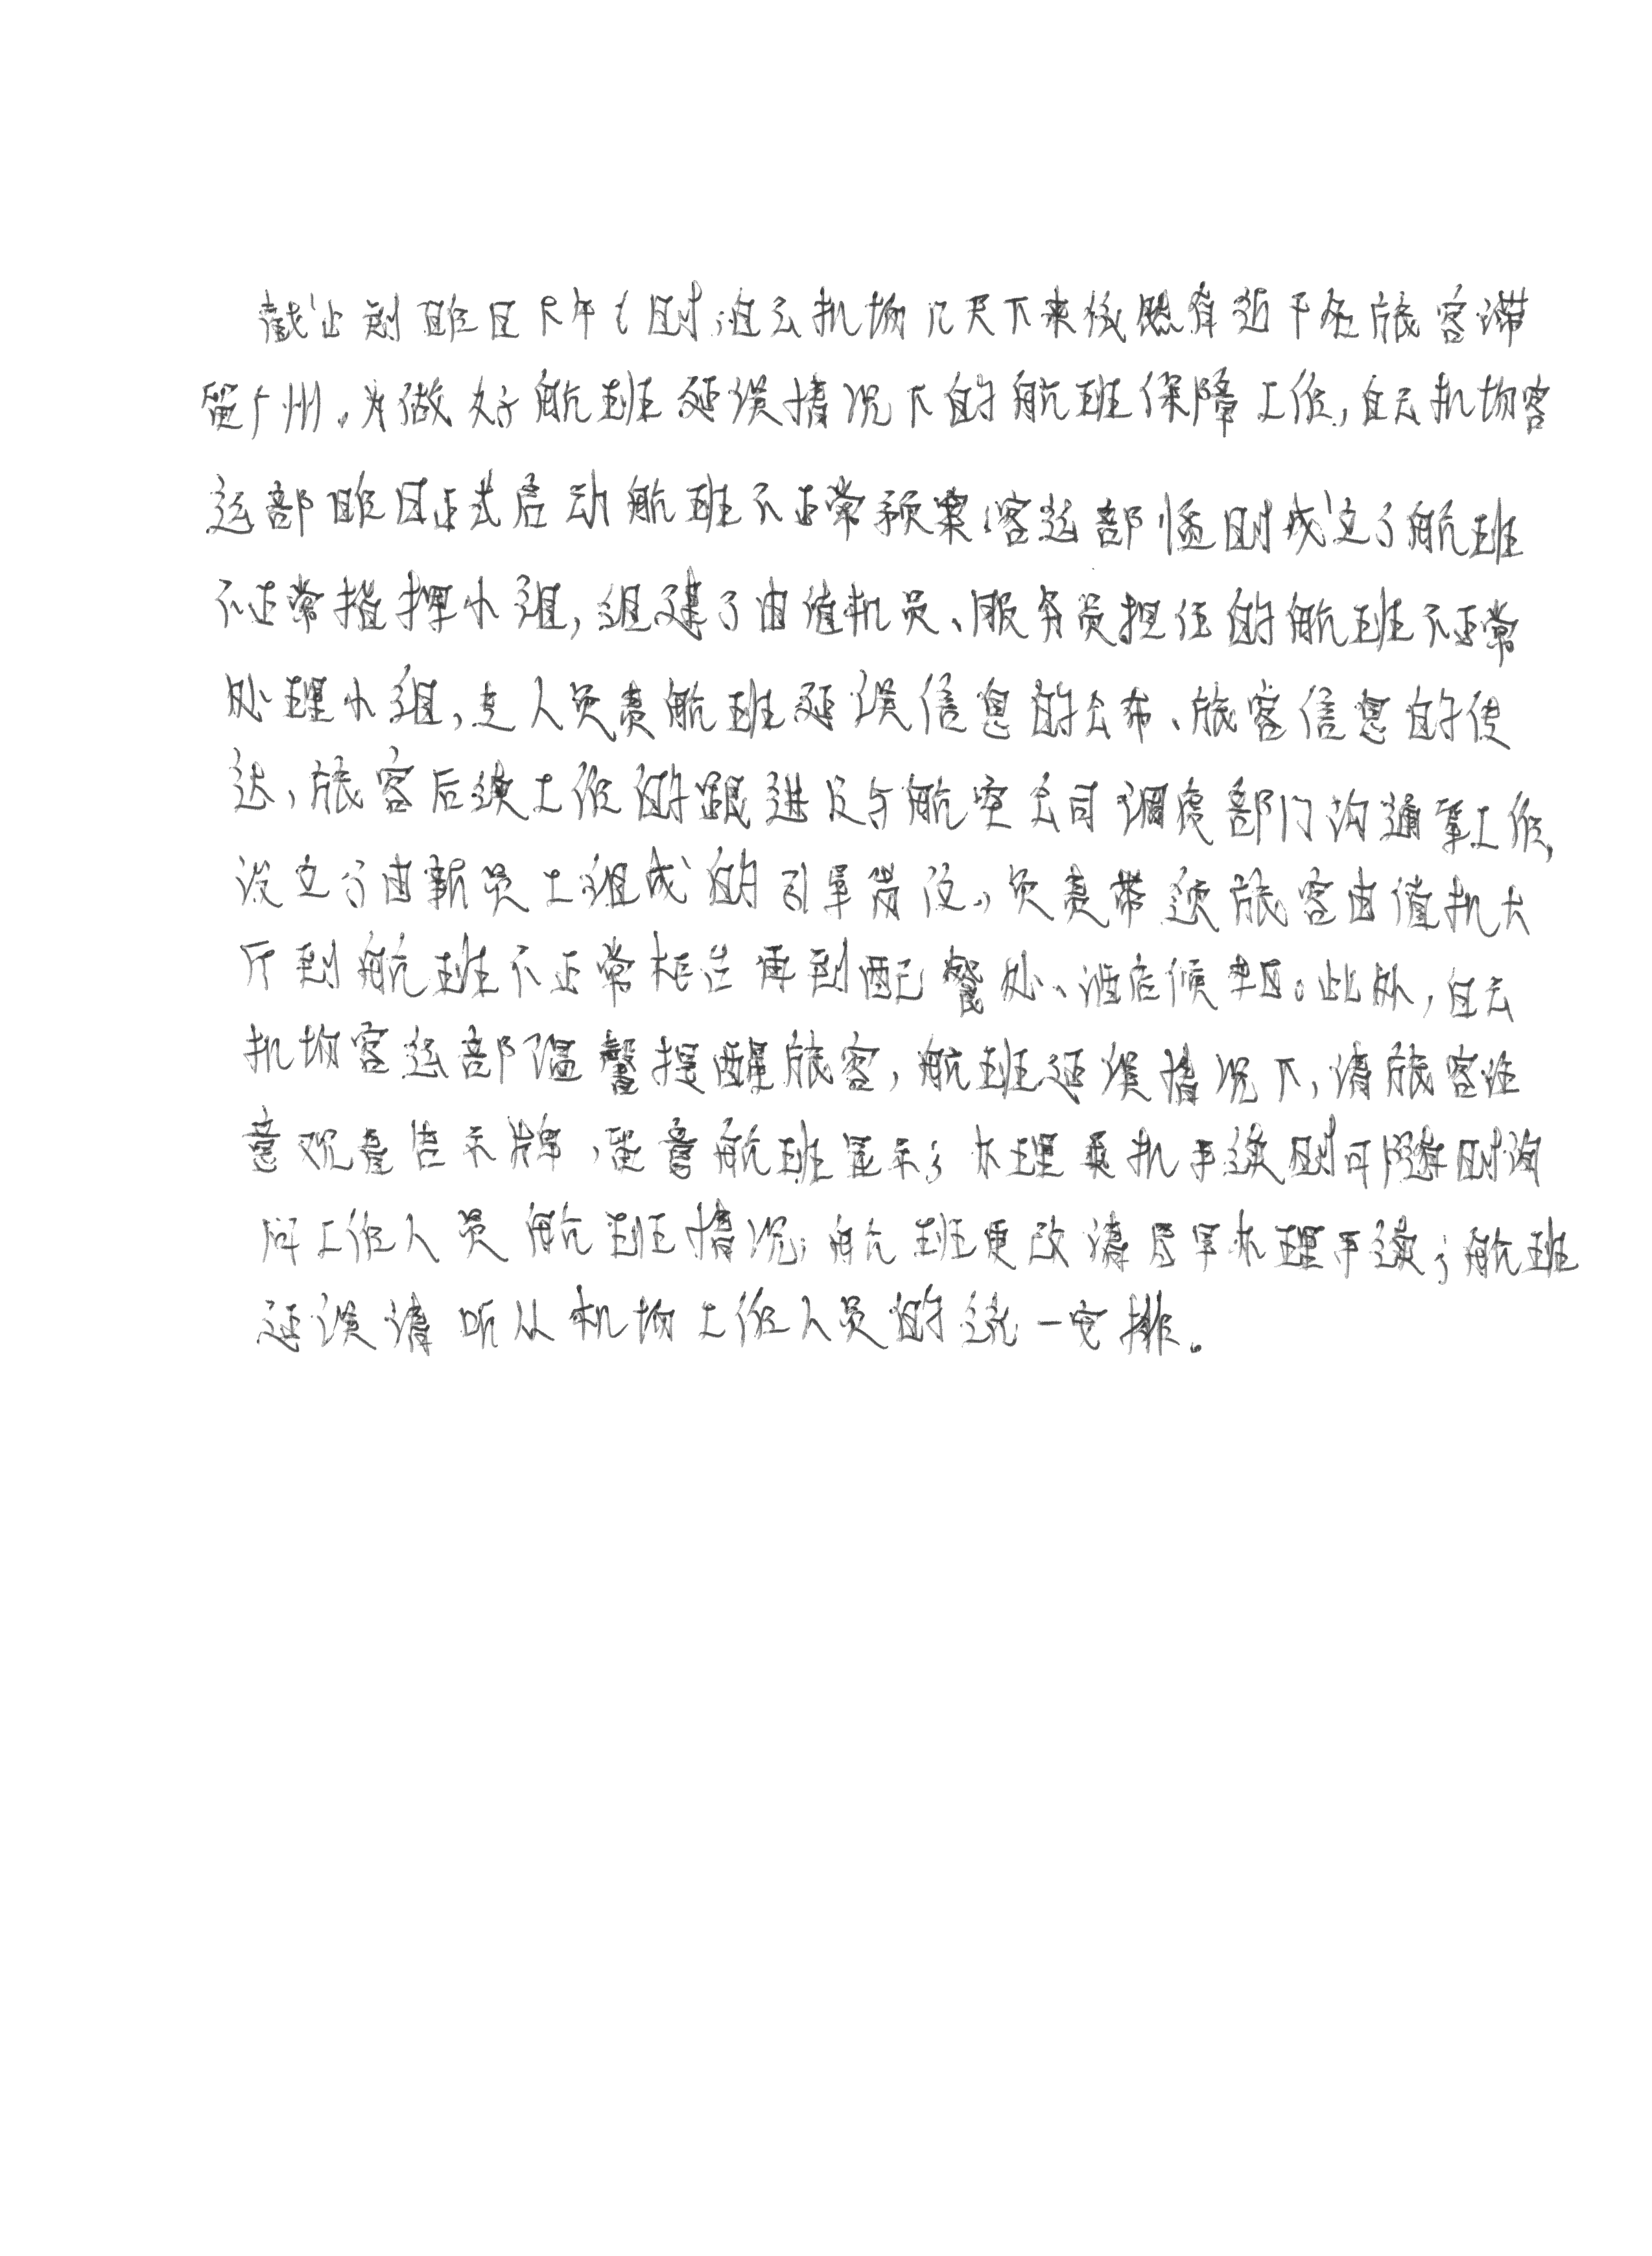 截止到昨日下午6时，白云机场几天下来依然有近千名旅客滞
留广州。为做好航班延误情况下的航班保障工作，白云机场客
运部昨日正式启动航班不正常预案：客运部临时成立了航班
不正常指挥小组，组建了由值机员、服务员担任的航班不正常
处理小组，专人负责航班延误信息的公布、旅客信息的传
达，旅客后续工作的跟进及与航空公司调度部门沟通等工作，
设立了由新员工组成的引导岗位，负责带领旅客由值机大
厅到航班不正常柜台再到配餐处、酒店候车区。此外，白云
机场客运部温馨提醒旅客，航班延误情况下，请旅客注
意观看告示牌，留意航班显示；办理乘机手续时可随时询
问工作人员航班情况；航班更改请尽早办理手续；航班
延误请听从机场工作人员的统一安排。